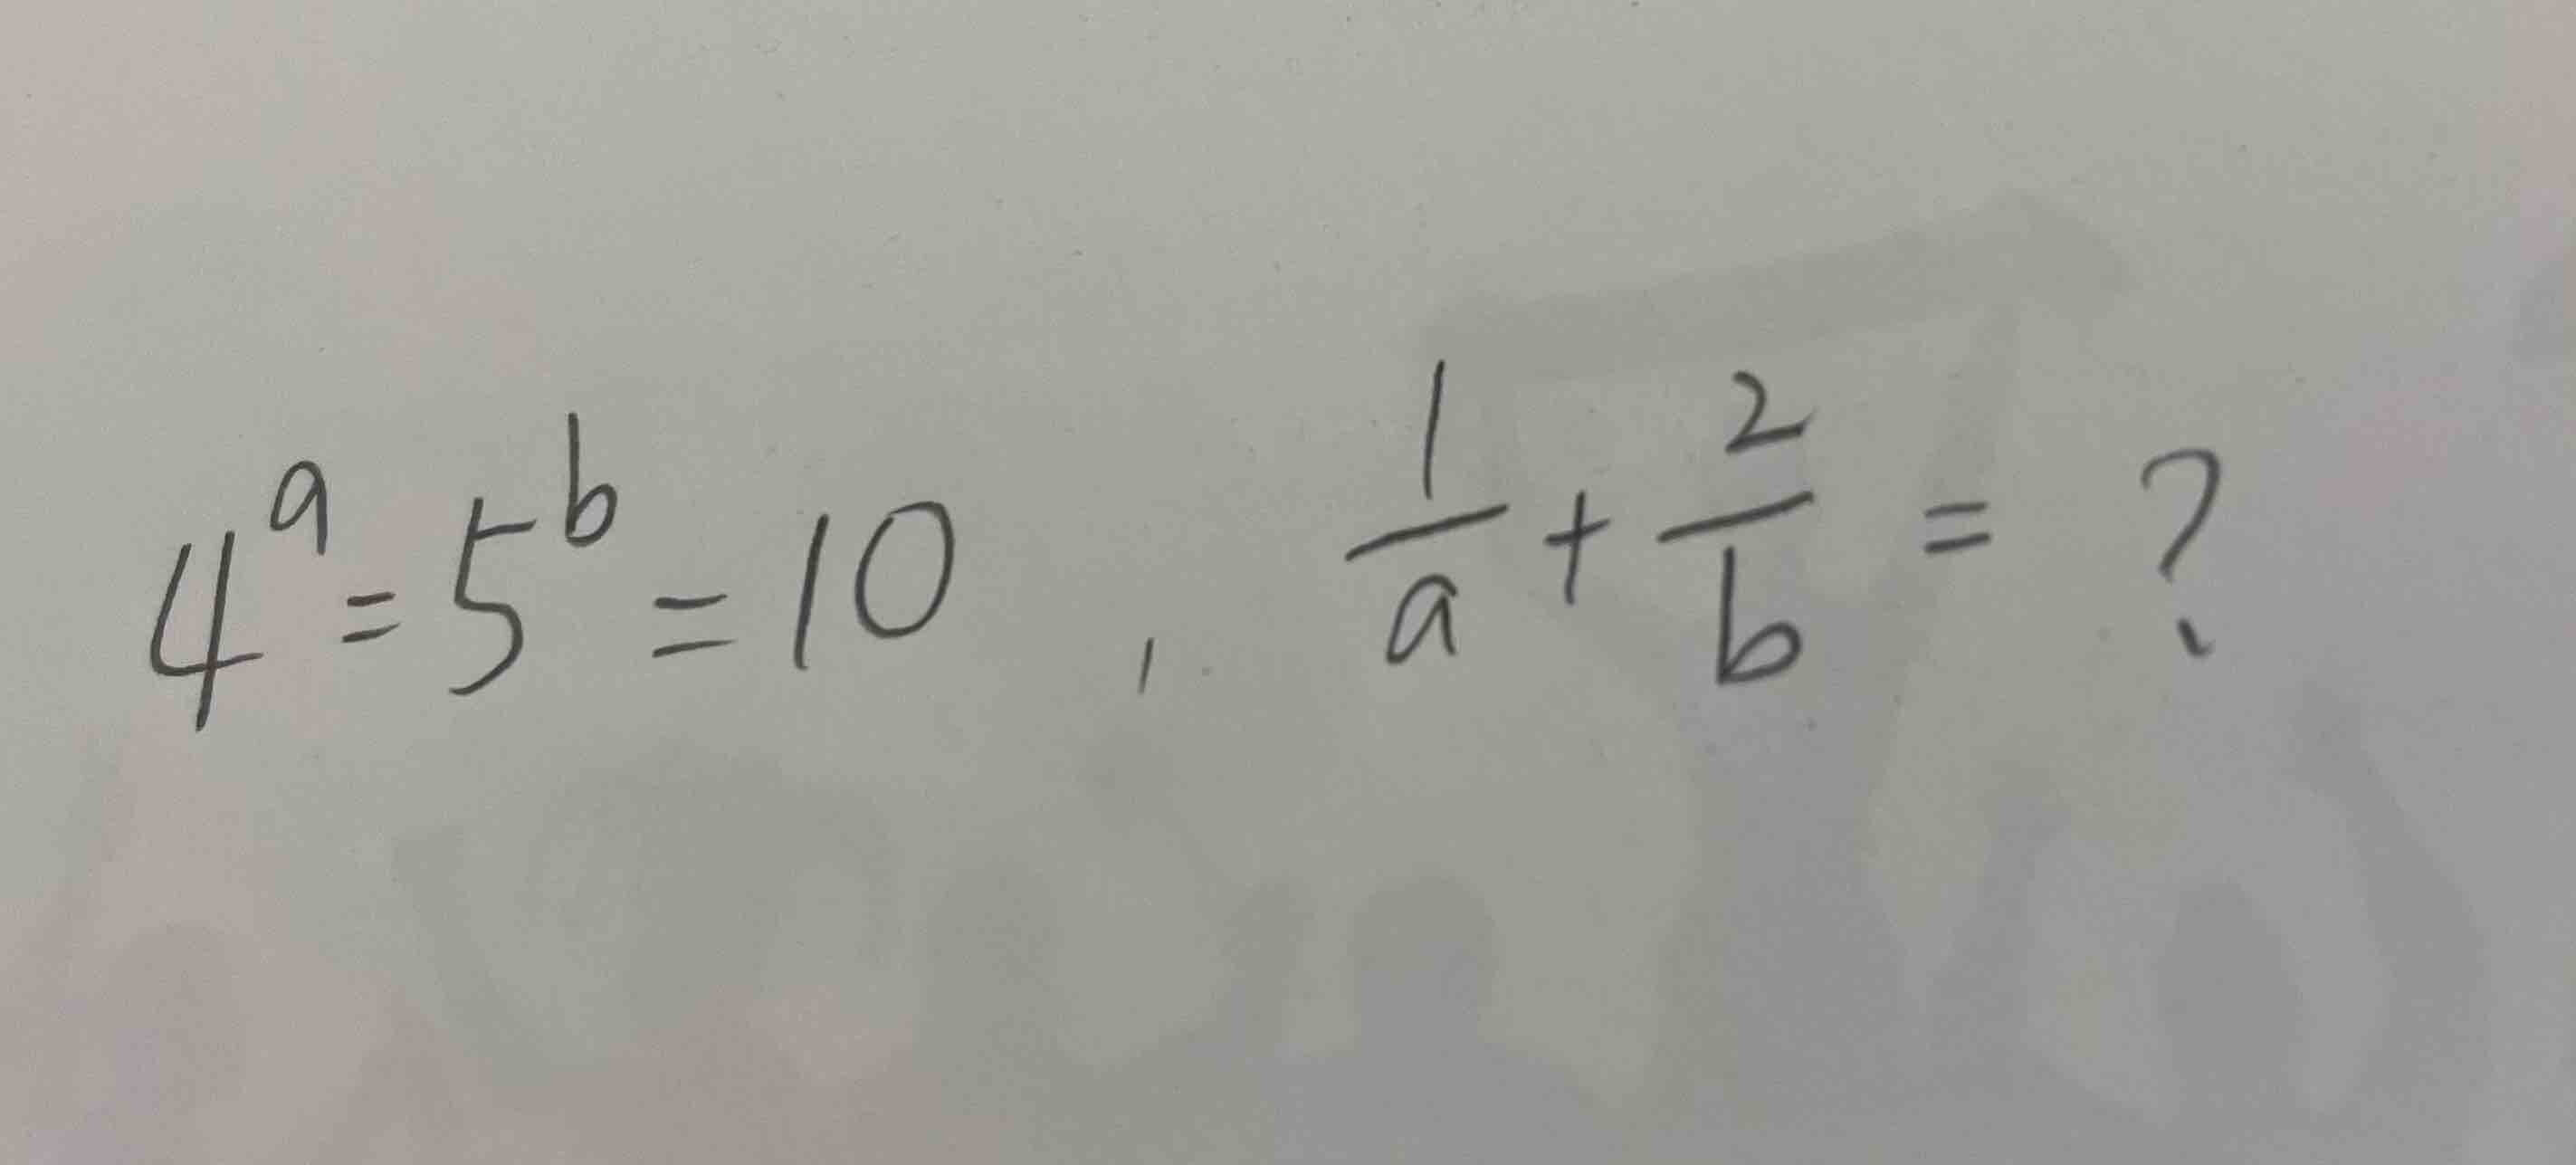 4^a = 5^b = 10 , 1/a + 2/b = ?